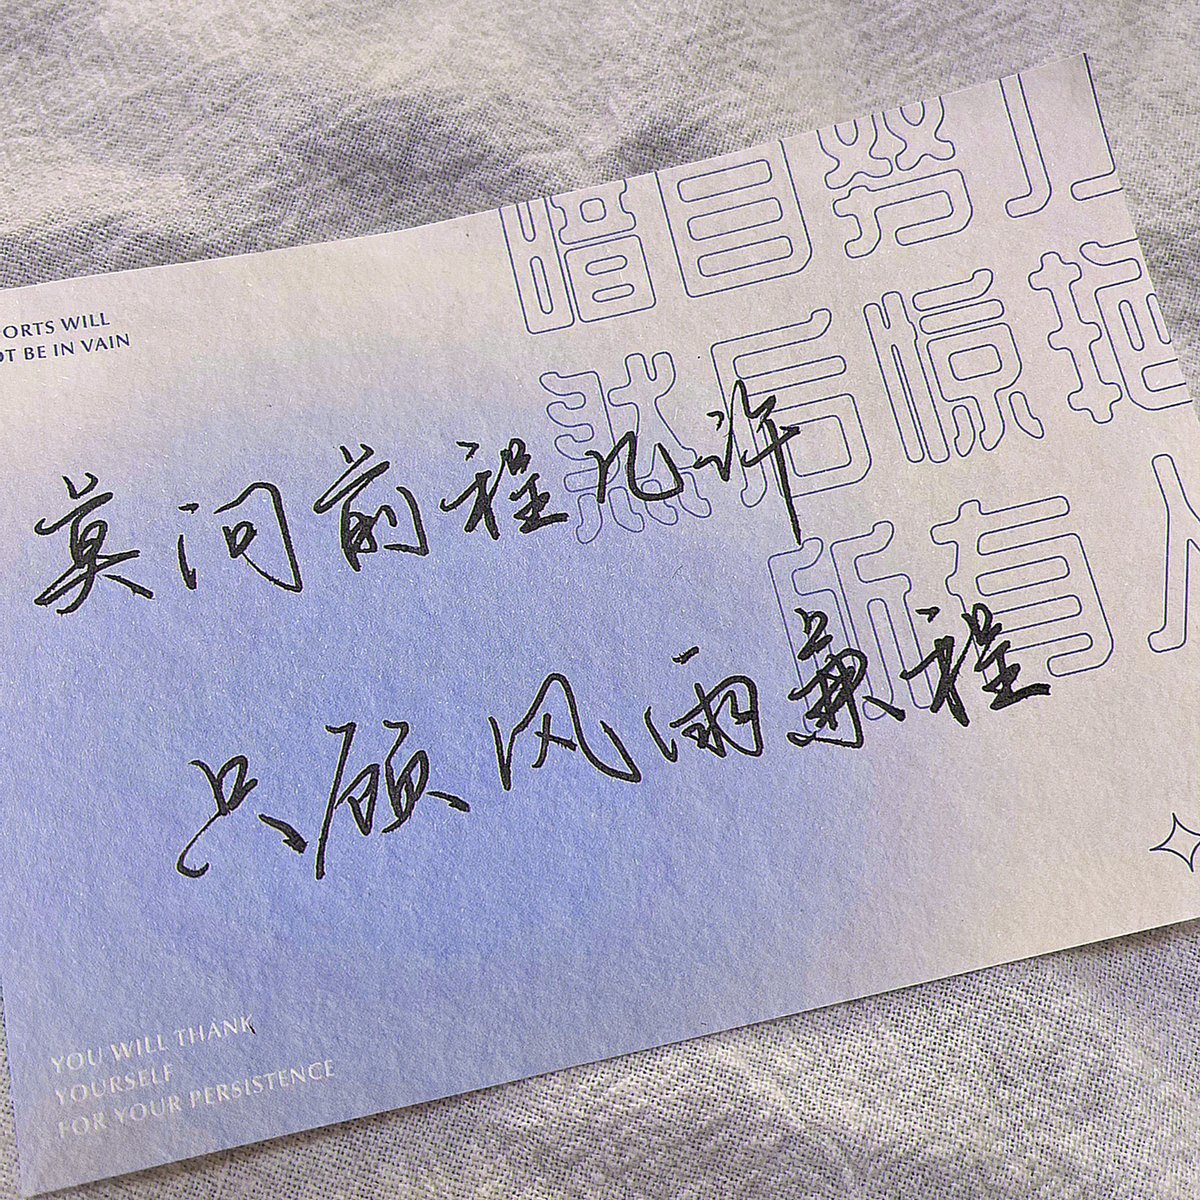 ORTS WILL
OT BE IN VAIN
暗自努力
然后惊艳
所有人
莫问前程几许
只顾风雨兼程
YOU WILL THANK
YOURSELF
FOR YOUR PERSISTENCE